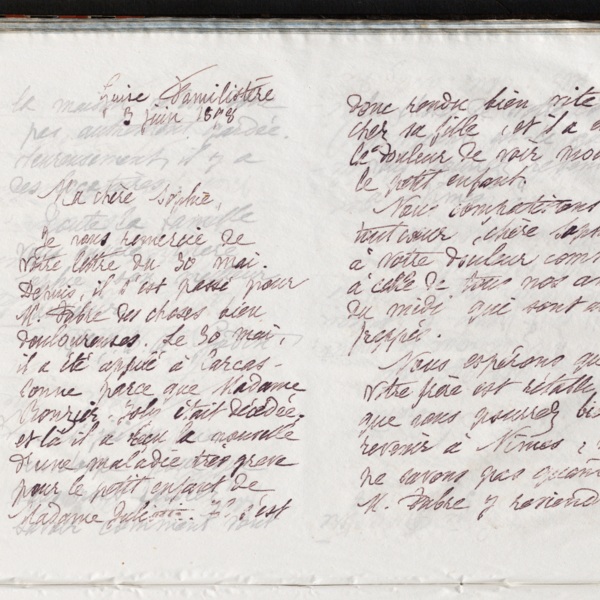 Guise Familistère
3 juin 18 8
Ma chère Sophie,
Je vous remercie de
votre lettre du 30 mai.
Depuis, il s'est passé pour
M. Fabre des choses bien
douloureuses. Le 30 mai,
il a été appelé à Carcas-
sonne parce que Madame
était décédée
et là il a reçu la nouvelle
d'une maladie très grave
pour le petit enfant de
Madame s'est
donc rendu bien vite
cher sa fille, et il a e
la douleur de voir mou
le petit enfant.
Nous compatissons
tout cœur, chère Soph
à votre douleur com
à celle de tous nos am
du midi qui sont
frappés.
Nous espérons qu
votre frère est rétabli
que vous pourrez bi
revenir à Nîmes ;
ne savons pas quan
M. Fabre y reviend